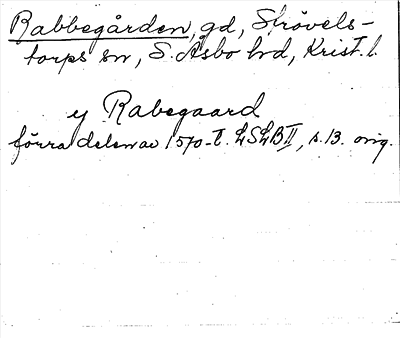 Rabbegården, gd, Strövels-
torps sn, S. Åsbo hd, Krist. l.
y Rabegaard
förra delen av 1570-t. LSLB II, s. 13. orig.